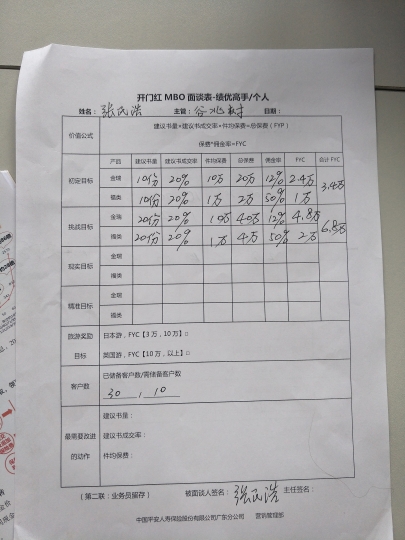 开门红 MBO 面谈表-绩优高手/个人
姓名：张民浩 主管：谷兆树 日期：
价值公式 建议书量*建议书成交率*件均保费=总保费（FYP）
保费*佣金率=FYC
产品 建议书量 建议书成交率 件均保费 总保费 佣金率 FYC 合计 FYC
初定目标 金瑞 10份 20% 10万 20万 12% 2.4万 3.4万
福类 10份 20% 1万 2万 50% 1万
挑战目标 金瑞 20份 20% 10万 40万 12% 4.8万 6.8万
福类 20份 20% 1万 4万 50% 2万
现实目标 金瑞
福类
精准目标 金瑞
福类
旅游奖励 日本游，FYC【3万，10万】□
目标 英国游，FYC【10万，以上】□
客户数 已储备客户数/需储备客户数
30 , 10
建议书量：
最需要改进 建议书成交率：
的动作 件均保费：
（第二联：业务员留存） 被面谈人签名：张民浩 主任签名：
中国平安人寿保险股份有限公司广东分公司 营销管理部